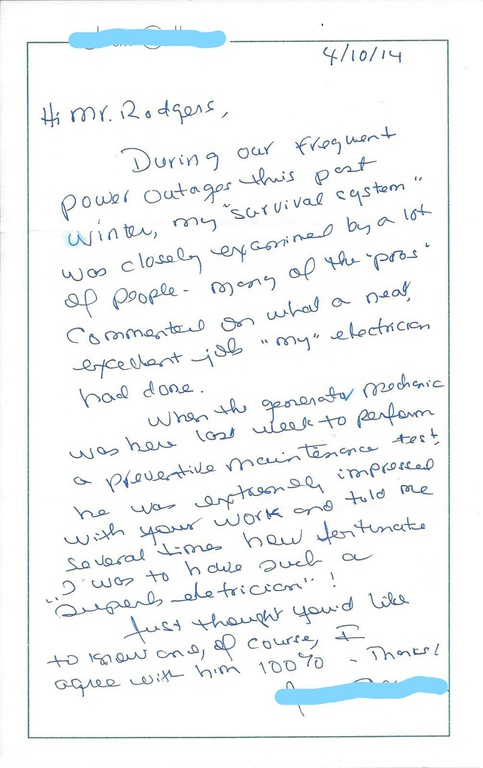 4/10/14
Hi Mr. Rodgers,
During our frequent
power outages this past
winter, my "survival system"
was closely examined by a lot
of people. Many of the "pros"
commented on what a neat,
excellent job "my" electrician
had done.
When the generator mechanic
was here last week to perform
a preventive maintenance test,
he was extremely impressed
with your work and told me
several times how fortunate
"I was to have such a
superb eletrician"!
Just thought you'd like
to know and, of course, I
agree with him 100%. Thanks!